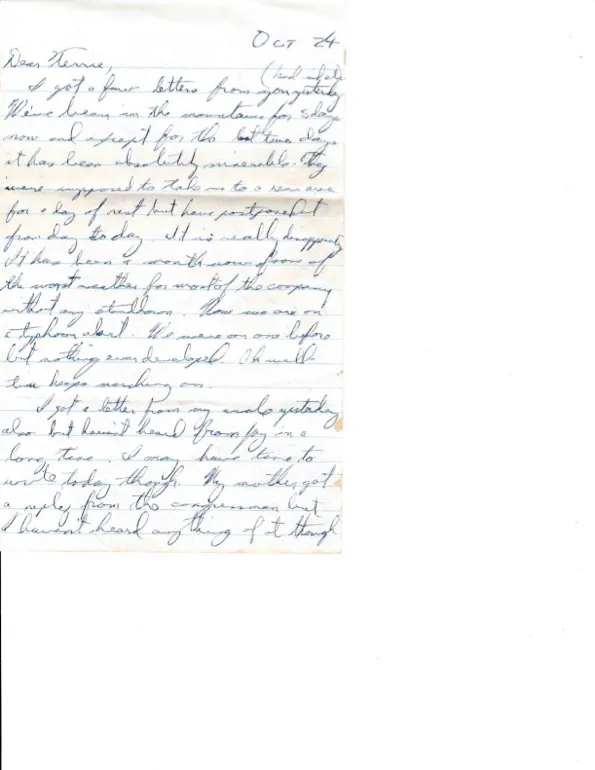 Oct 24
Dear Kerrie,
I got a few letters from you yesterday.
We've been in the mountains for 5 days
now and except for the last two days
it has been absolutely miserable. They
were supposed to take us to a rear area
for a day of rest but have postponed it
from day to day. It is really disappointing
It has been a month now of some of
the worst weather for most of the company
without any standdown. Now we are on
a typhoon alert. We were on one before
but nothing ever developed. Oh well
time keeps marching on.
I got a letter from my uncle yesterday
also but haven't heard from Joy in a
long time. I may have time to
write today though. My mother got
a reply from the congressman but
I haven't heard anything of it though